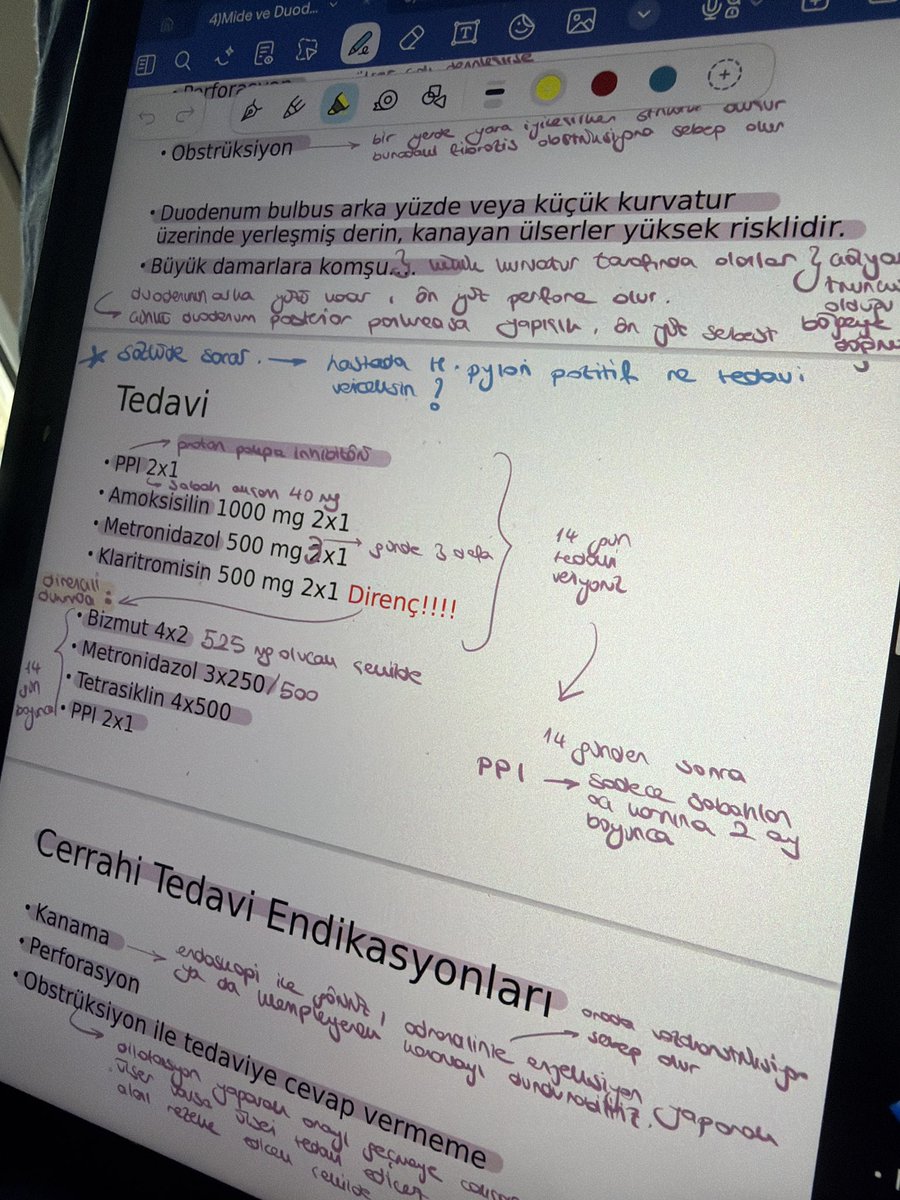 4)Mide ve Duod...
Perforasyon
• Obstrüksiyon → bir yerde yara iyileşirken striktür oluşur
buradaki fibrozis obstrüksiyona sebep olur
• Duodenum bulbus arka yüzde veya küçük kurvatur
üzerinde yerleşmiş derin, kanayan ülserler yüksek risklidir.
• Büyük damarlara komşu... küçük kurvatur tarafında olanlar } çölyak
trunkus
olduğu
bölgeye
doğru
duodenumun arka yüzü kanar, ön yüz perfore olur.
çünkü duodenum posterior pankreasa yapışık, ön yüz sebest
* sözlüde sorar. → hastada H. pylori pozitif ne tedavi
vericeksin ?
Tedavi
proton pompa inhibitörü
• PPI 2x1
sabah akşam 40 mg
• Amoksisilin 1000 mg 2x1
• Metronidazol 500 mg 3x1 → günde 3 defa
• Klaritromisin 500 mg 2x1 Direnç!!!!
14 gün
tedavi
veriyoruz
dirençli
durumda :
• Bizmut 4x2 525 mg olucak şekilde
• Metronidazol 3x250/500
• Tetrasiklin 4x500
• PPI 2x1
14
gün
boyunca
14 günden sonra
PPI → sadece sabahları
aç karnına 2 ay
boyunca
Cerrahi Tedavi Endikasyonları
• Kanama → endoskopi ile görürüz, adrenalinle enjeksiyon yaparak
ya da klempleyerek kanamayı durdurabiliriz.
orada vazokonstrüksiyon
sebep olur
• Perforasyon
• Obstrüksiyon ile tedaviye cevap vermeme
dilatasyon yaparak orayı geçmeye
ülser varsa ülseri tedavi edicez
alanı rezeke edicek şekilde